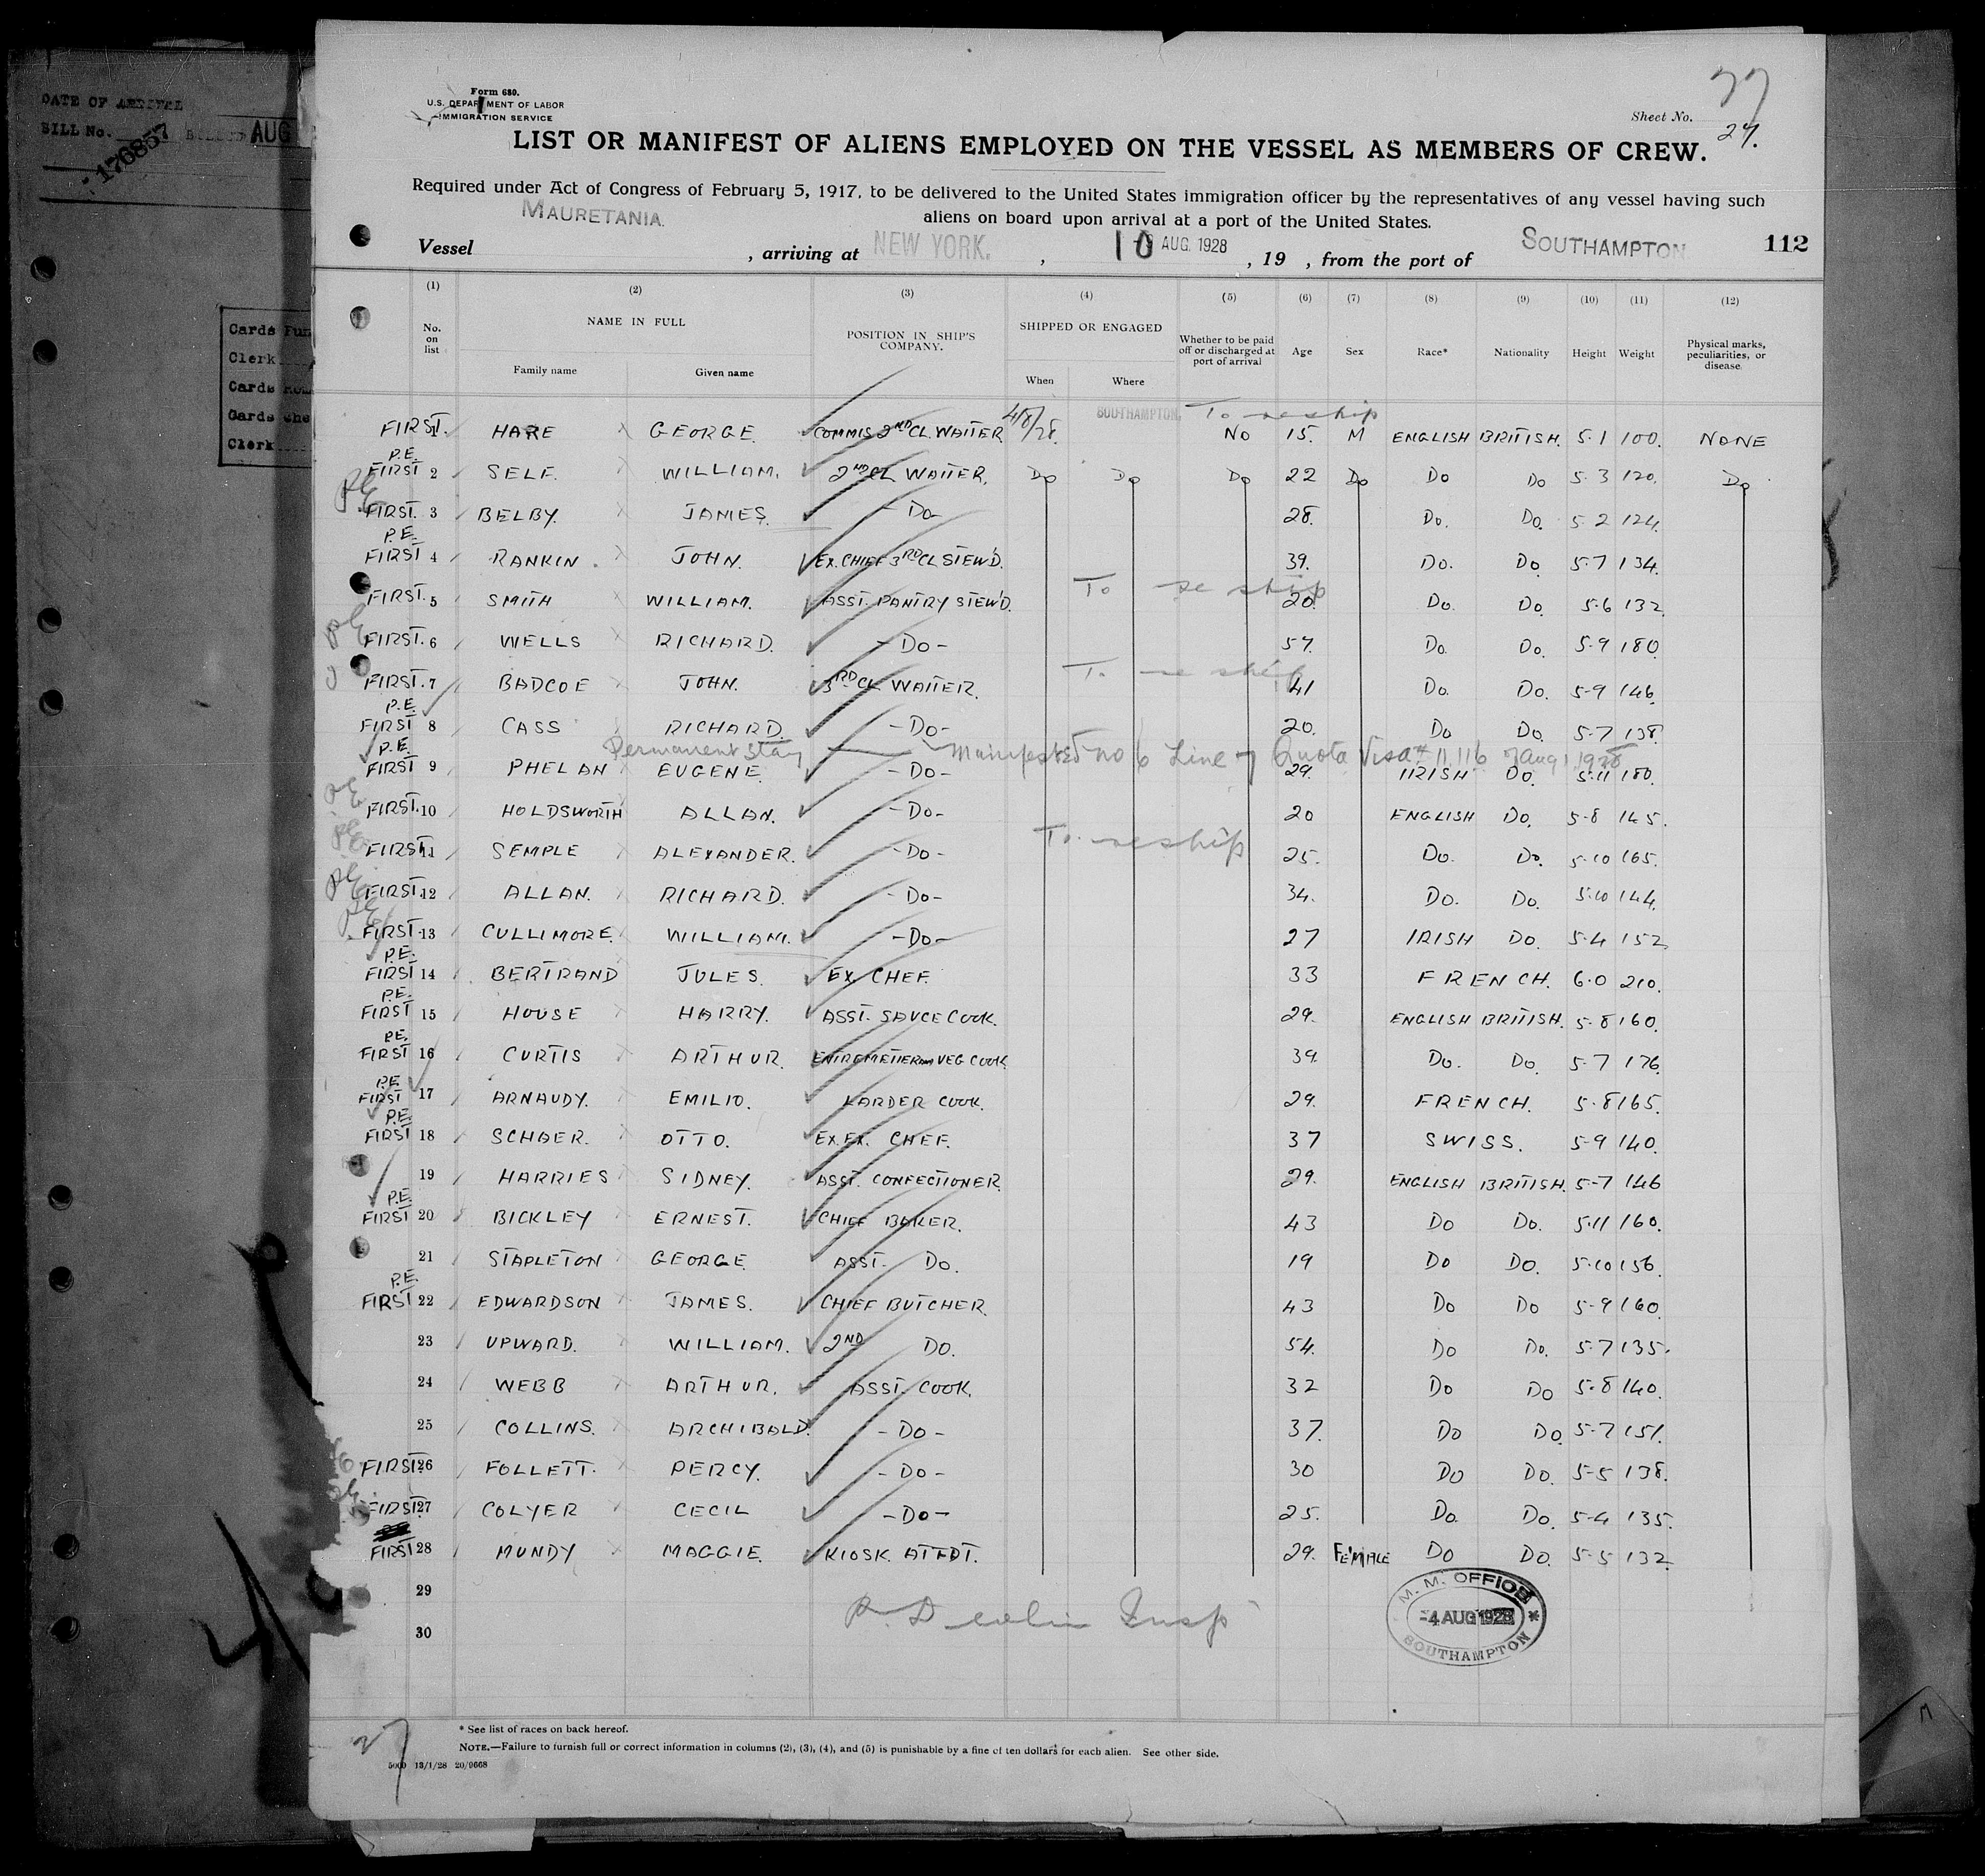 DATE OF ARRIVAL
BILL No. 176857 AUG
Cards Fun
Clerk
Cards
Cards Che
Clerk
Form 680.
U.S. DEPARTMENT OF LABOR
IMMIGRATION SERVICE
Sheet No. 27.
LIST OR MANIFEST OF ALIENS EMPLOYED ON THE VESSEL AS MEMBERS OF CREW.
Required under Act of Congress of February 5, 1917, to be delivered to the United States immigration officer by the representatives of any vessel having such
aliens on board upon arrival at a port of the United States.
Vessel MAURETANIA. , arriving at NEW YORK. , 10 AUG. 1928 , 19 , from the port of SOUTHAMPTON 112
(1) (2) (3) (4) (5) (6) (7) (8) (9) (10) (11) (12)
No. on list NAME IN FULL POSITION IN SHIP'S COMPANY. SHIPPED OR ENGAGED Whether to be paid off or discharged at port of arrival Age Sex Race* Nationality Height Weight Physical marks, peculiarities, or disease
Family name Given name When Where
To reship
FIRST. 1 HARE GEORGE. COMMIS 2ND CL. WAITER 4/8/28. SOUTHAMPTON. NO 15. M ENGLISH BRITISH. 5.1 100. NONE
P.E. FIRST 2 SELF. WILLIAM. 2ND CL WAITER. Do Do Do 22 Do Do Do 5.3 120. Do
PE FIRST. 3 BELBY. JAMES. -Do- 28. Do. Do. 5.2 124.
P.E. FIRST 4 RANKIN. JOHN. EX. CHIEF 3RD CL STEW'D. 39. Do. Do 5.7 134.
To reship
FIRST. 5 SMITH WILLIAM. ASST. PANTRY STEW'D. 20. Do. Do 5.6 132.
PE FIRST. 6 WELLS RICHARD. -Do- 57. Do. Do. 5.9 180.
To reship
FIRST. 7 BADCOE JOHN. 3RD CL WAITER. 41 Do. Do. 5-9 146.
P.E. FIRST 8 CASS RICHARD. -Do- 20. Do Do. 5.7 138.
Permanent Stay Manifested no 6 Line 7 Quota Visa # 11,116 Aug 1 1928
P.E. FIRST 9 PHELAN EUGENE. -Do- 29. IRISH Do. 5.11 180.
PE FIRST. 10 HOLDSWORTH ALLAN. -Do- 20 ENGLISH Do. 5-8 145.
To reship
PE FIRST. 11 SEMPLE ALEXANDER. -Do- 25. Do. Do. 5.10 165.
PE FIRST. 12 ALLAN. RICHARD. -Do- 34. Do. Do. 5.10 144.
PE FIRST. 13 CULLIMORE. WILLIAM. -Do- 27 IRISH Do. 5.4 152
P.E. FIRST 14 BERTRAND JULES. EX. CHEF. 33 FRENCH. 6.0 210.
P.E. FIRST 15 HOUSE HARRY. ASST. SAUCE COOK. 29. ENGLISH BRITISH. 5.8 160.
P.E. FIRST 16 CURTIS ARTHUR. ENTREMETIER AND VEG COOK. 39. Do. Do. 5.7 176.
P.E. FIRST 17 ARNAUDY. EMILIO. LARDER COOK. 29. FRENCH. 5.8 165.
P.E. FIRST 18 SCHAER. OTTO. EX. EX. CHEF. 37 SWISS. 5-9 140.
19 HARRIES SIDNEY. ASST. CONFECTIONER. 29. ENGLISH BRITISH. 5-7 146
P.E. FIRST 20 BICKLEY ERNEST. CHIEF BAKER. 43 Do Do. 5.11 160.
21 STAPLETON GEORGE. ASST. Do. 19 Do Do. 5.10 156.
P.E. FIRST 22 EDWARDSON JAMES. CHIEF BUTCHER. 43 Do Do 5-9 160.
23 UPWARD. WILLIAM. 2ND Do. 54. Do Do. 5.7 135.
24 WEBB ARTHUR. ASST. COOK. 32 Do Do 5.8 140.
25 COLLINS. ARCHIBALD. -Do- 37. Do Do. 5-7 151.
FIRST. 26 FOLLETT. PERCY. -Do- 30 Do Do. 5-5 138.
FIRST. 27 COLYER CECIL -Do- 25. Do. Do. 5-4 135.
FIRST 28 MUNDY MAGGIE. KIOSK. ATTDT. 29. FEMALE Do Do. 5-5 132
29
30
M. M. OFFICE
-4 AUG 1928
SOUTHAMPTON
27
* See list of races on back hereof.
NOTE.—Failure to furnish full or correct information in columns (2), (3), (4), and (5) is punishable by a fine of ten dollars for each alien. See other side.
5000 13/1/28 20/9668